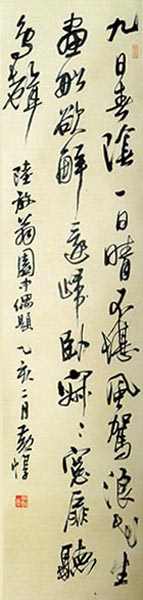 九日春陰一日晴不堪風駕浪花生
畫船欲解還歸臥寂〻窗扉聽
鳥聲
陸放翁園中偶題 乙亥二月黃惇